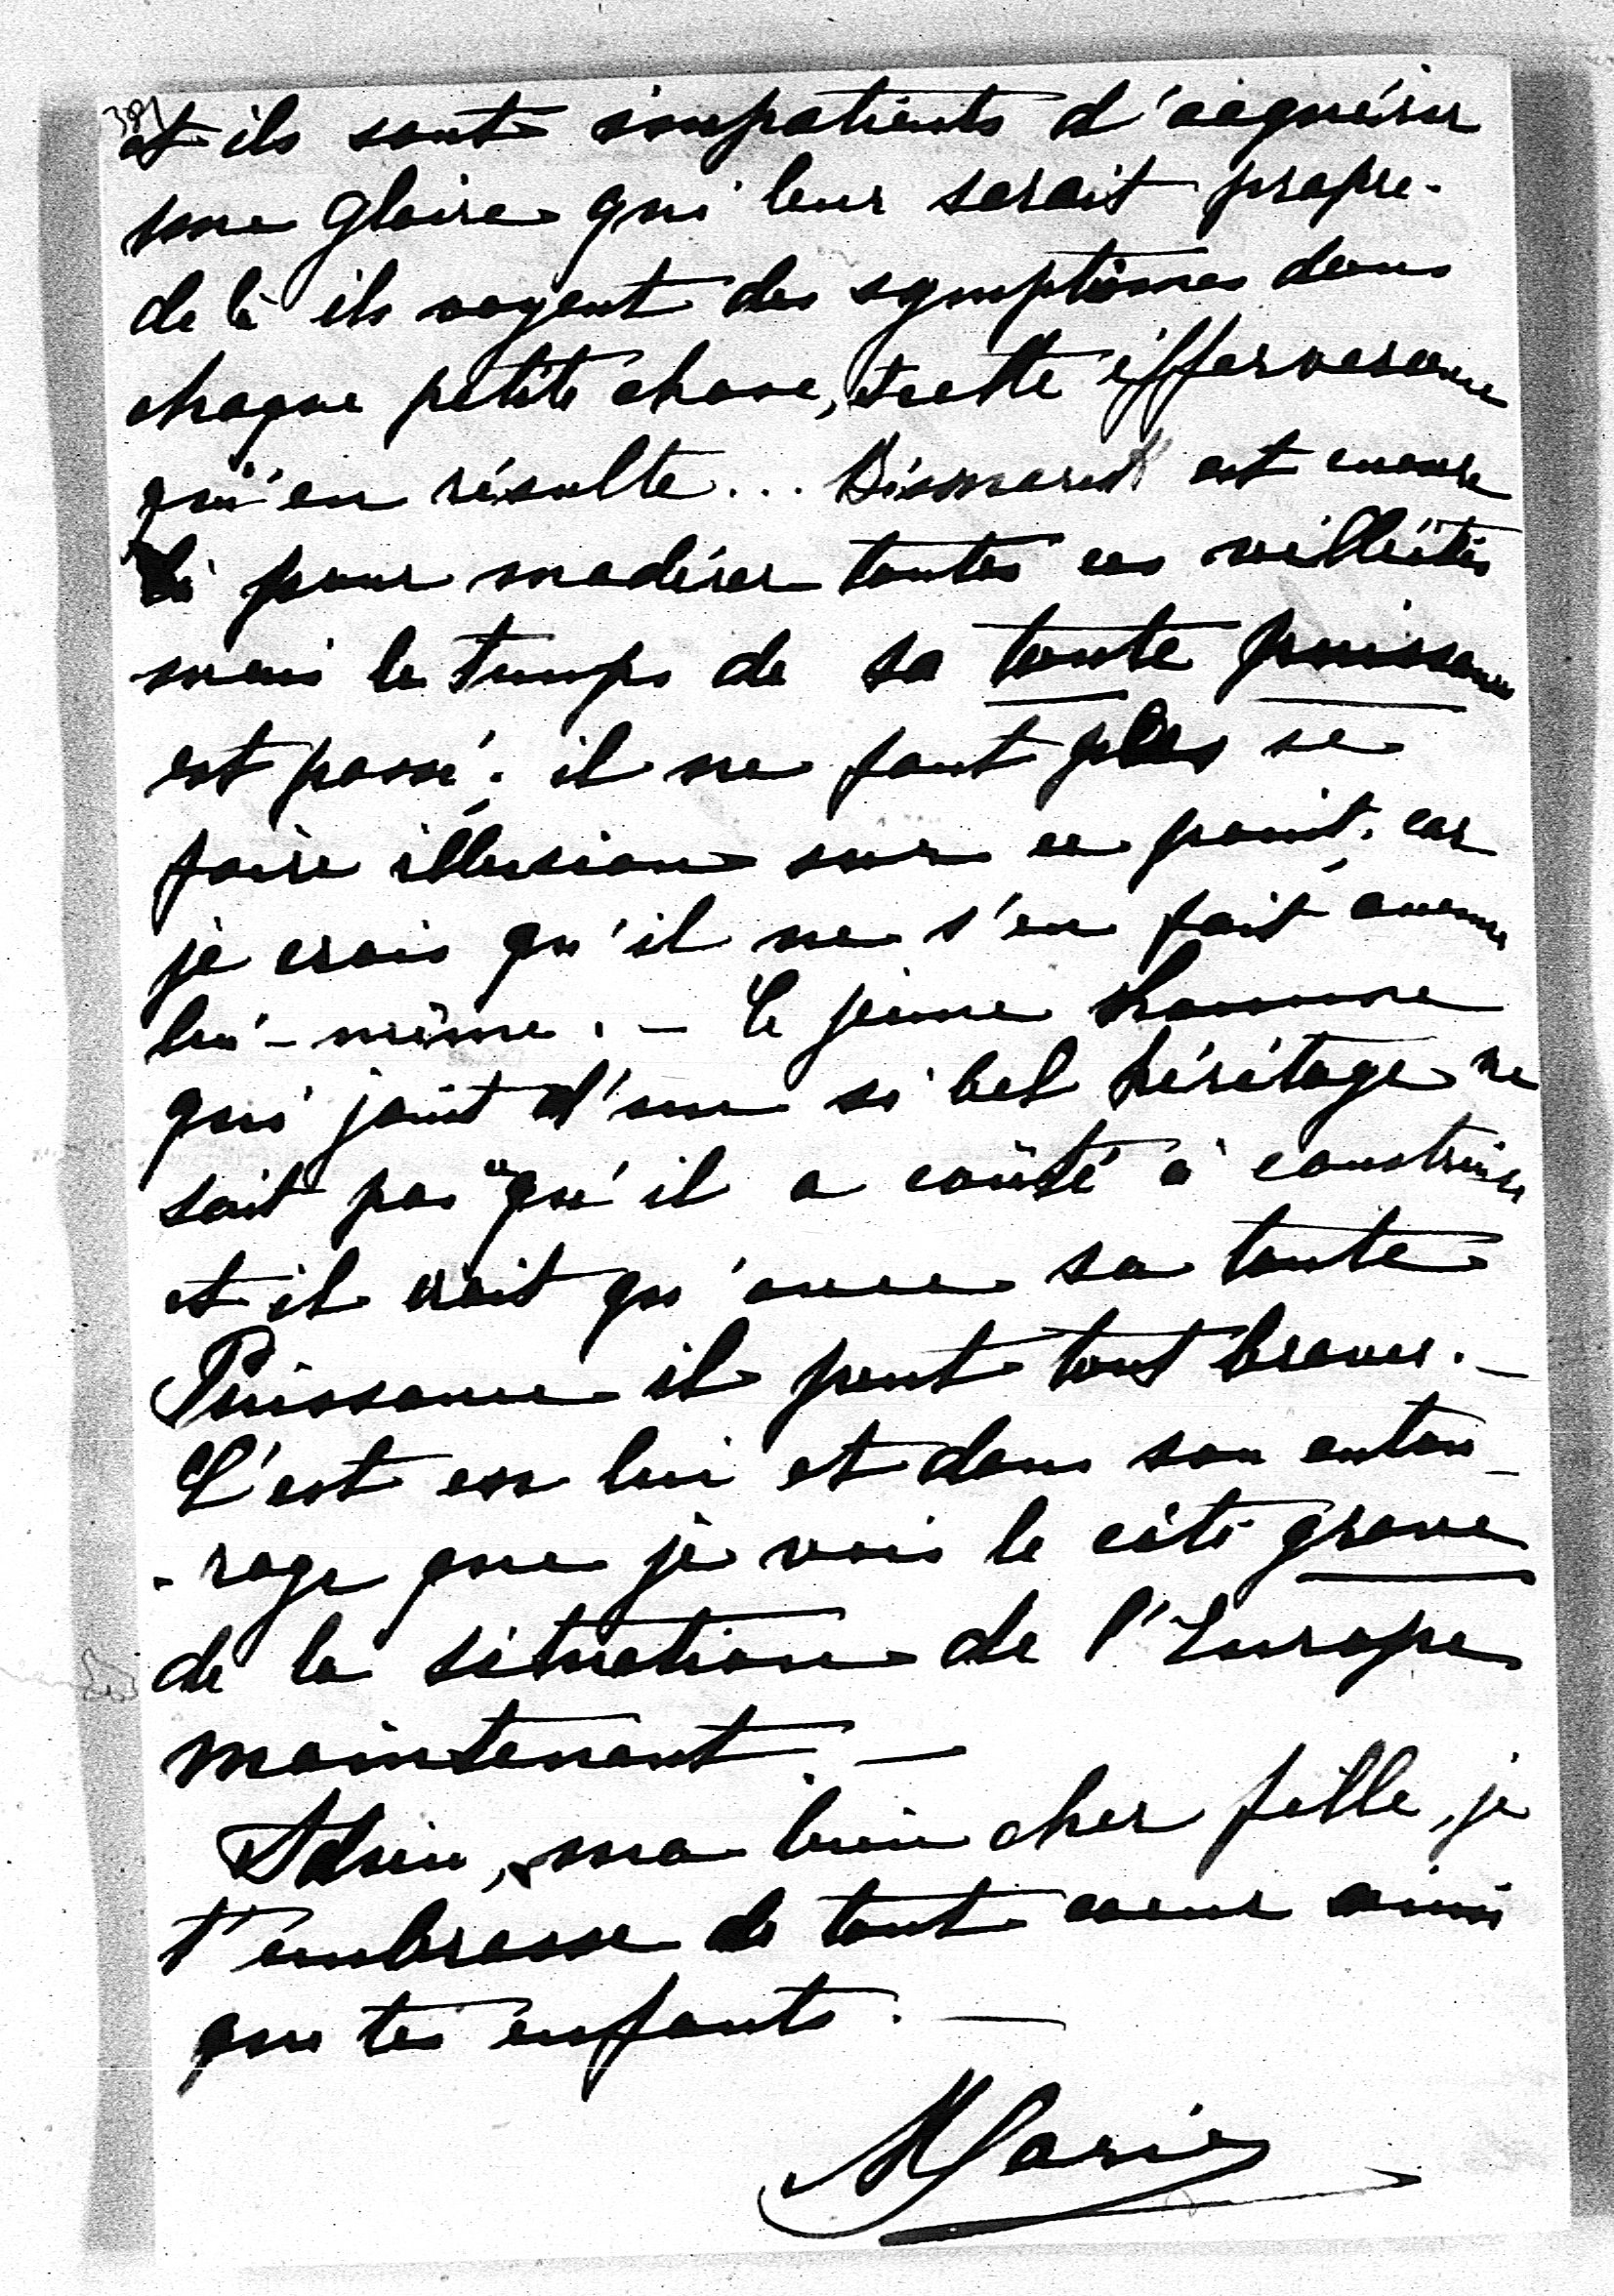 381
et ils sont impatients d'acquérir
une gloire qui leur serait propre.
de là ils voyent des symptômes dans
chaque petite chose, et cette éffervescence
qui en résulte... Bismarck est encore
là pour modérer toutes ces velléités
mais le temps de sa toute puissance
est passé: il ne faut plus se
faire illusion sur ce point, car
je crois qu'il ne s'en fait aucune
lui-même. - Le jeune homme
qui jouit d'un si bel héritage ne
sait pas qu'il a coûté à construire
et il croit qu'avec sa toute
Puissance il peut tout braver. _
C'est en lui et dans son entou_
-rage que je vois le côté grave
de la situation de l'Europe
maintenant. _
Adieu, ma bien cher fille, je
t'embrasse de tout coeur ainsi
que tes enfants. _
Marie